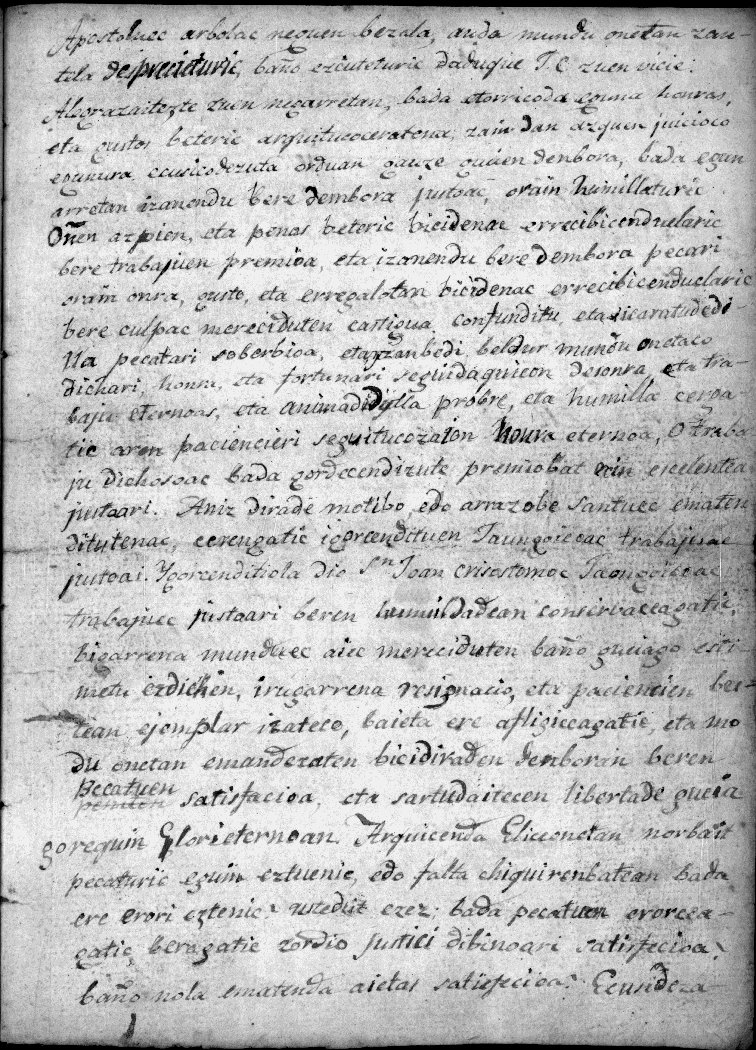 Apostoluec arbolac neguen bezala, auda mundu onetan zau-
tela despreciaturic, baño ezcuteturic daduque J.C. zuen vicie:
Alegrazaitezte zuen negarretan, bada etorricoda eguna honras,
eta gustos beteric arquitucoceratena, zain dan azquen juicioco
egunura ecusicodezuta orduan gauze guien denbora, bada egun
arretan izanendu bere dembora justoac, orain humillaturic
Oñen azpien, eta penas beteric bicidenac errecibicenduelaric
bere trabajuen premioa, eta izanendu bere dembora pecari
orain onra, gusto, eta erregalotan bicidenac errecibicenduelaric
bere culpac mereciduten castigua. confunditu eta icaratudedi
Ila pecatari soberbioa, eta yzanbedi beldur mundu onetaco
dichari, honra, eta fortunari seguidaquieon desonra, eta tra-
baju eternoas, eta animadidylla probre, eta humilla cergа
tic aren paciencieri seguitucozaion honra eternoa, O traba
ju dichosoac bada gordecendizute premiobat ain excelentea
justoari. Aniz dirade motibo, edo arrazobe santuec ematen
ditutenac, cerengatic igorcendituen Jaungoicoac trabajuac
justoai. Ygorcenditiola dio Sn Joan crisostomoc Jaongoicoac
trabajuec justoari beren humildadean conserbaceagatic,
bigarrena munduec aiec mereciduten baño guciago esti-
metu ezdichen, irugarrena resignacio, eta paciencien bes-
tean ejemplar izateco, baieta ere afligiceagatic, eta mo
du onetan emandezaten bicidiraden denboran beren
pecatuen
satisfacioa, eta sartudaitecen libertade gucia
gorequin Glori eternoan. Arquicenda Elicconetan norbait
pecaturic eguin eztuenic, edo falta chiquirenbatean bada
ere erori eztenic? ustedut ezez; bada pecatuen erorcea-
gatic, beragatic zordio justici dibinoari satisfecioa?
baño nola ematenda aietas satisfecioa? Ecusideza-